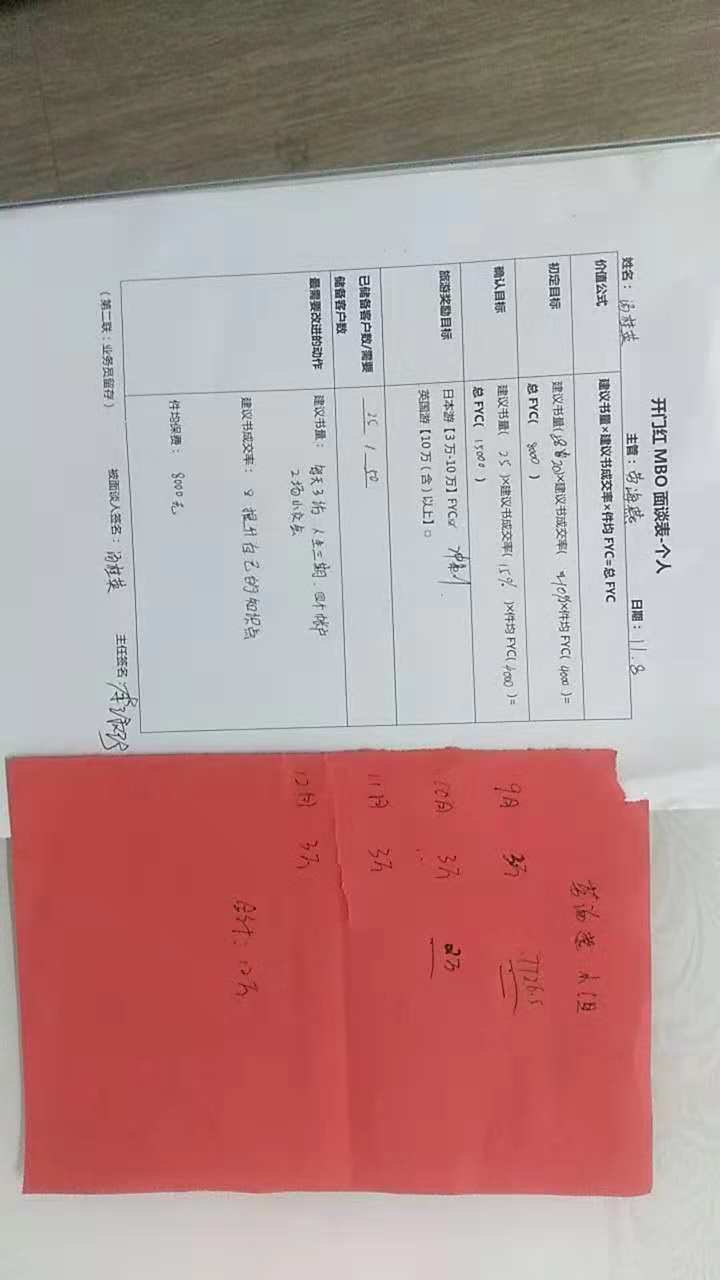 开门红 MBO 面谈表-个人
姓名： 汤桂英 主管： 海燕 日期： 11.8
价值公式 建议书量×建议书成交率×件均 FYC=总 FYC
初定目标 建议书量( 20)×建议书成交率( 10%)×件均 FYC( 4000 )=
总 FYC( 8000 )
确认目标 建议书量( 25 )×建议书成交率( 15% )×件均 FYC( 4000 )=
总 FYC( 15000 )
旅游奖励目标 日本游【3 万-10 万】FYC☑ 冲刺
英国游【10 万（含）以上】□
已储备客户数/需要
储备客户数 25 / 50
最需要改进的动作 建议书量： 每天3访
建议书成交率： 提升自己的知识点
件均保费： 8000元
（第二联：业务员留存） 被面谈人签名： 汤桂英 主任签名：
海燕 小组
9月 3万 7726.5
10月 3万 2万
11月 3万
12月 3万
合计：12万